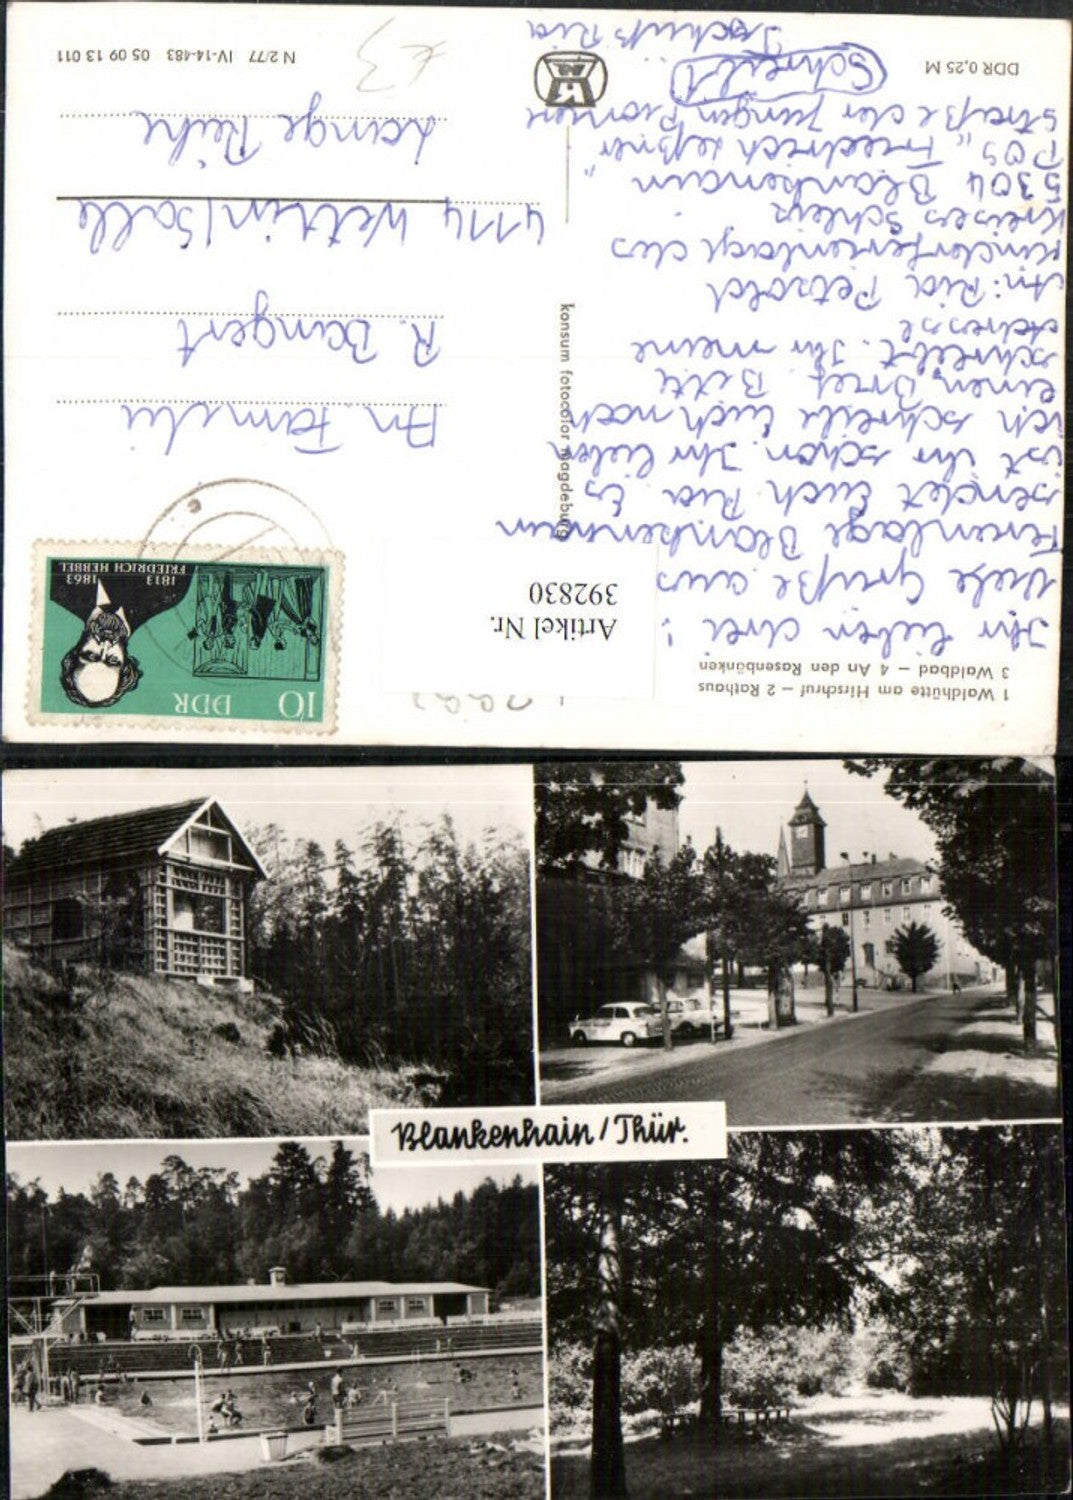 1 Waldhütte am Hirschruf – 2 Rathaus
3 Waldbad – 4 An den Rasenbänken
Ihr lieben drei!
Viele Grüße aus
Ferienlage Blankenhain
sendet Euch Ria. Es
ist ihr schön. Ihr lieben
ich schreibe Euch noch
einen Brief. Bitte
schreibt. Ihr meine
Adresse
An: Ria Petzold
Kinderferienlage des
Kreises Schleiz
5304 Blankenhain
POS „Friedrich Leßner"
Straße der Jungen Pionier
Schreibt
Tschüß Ria
DDR 0,25 M
Artikel Nr.
392830
konsum fotocolor magdeburg
10 DDR
1813 1863
FRIEDRICH HEBBEL
An. Famili
R. Bangert
4114 Wettin/Salle
Lange Reihe
€3
N 2/77 IV-14-483 05 09 13 011
Blankenhain/Thür.